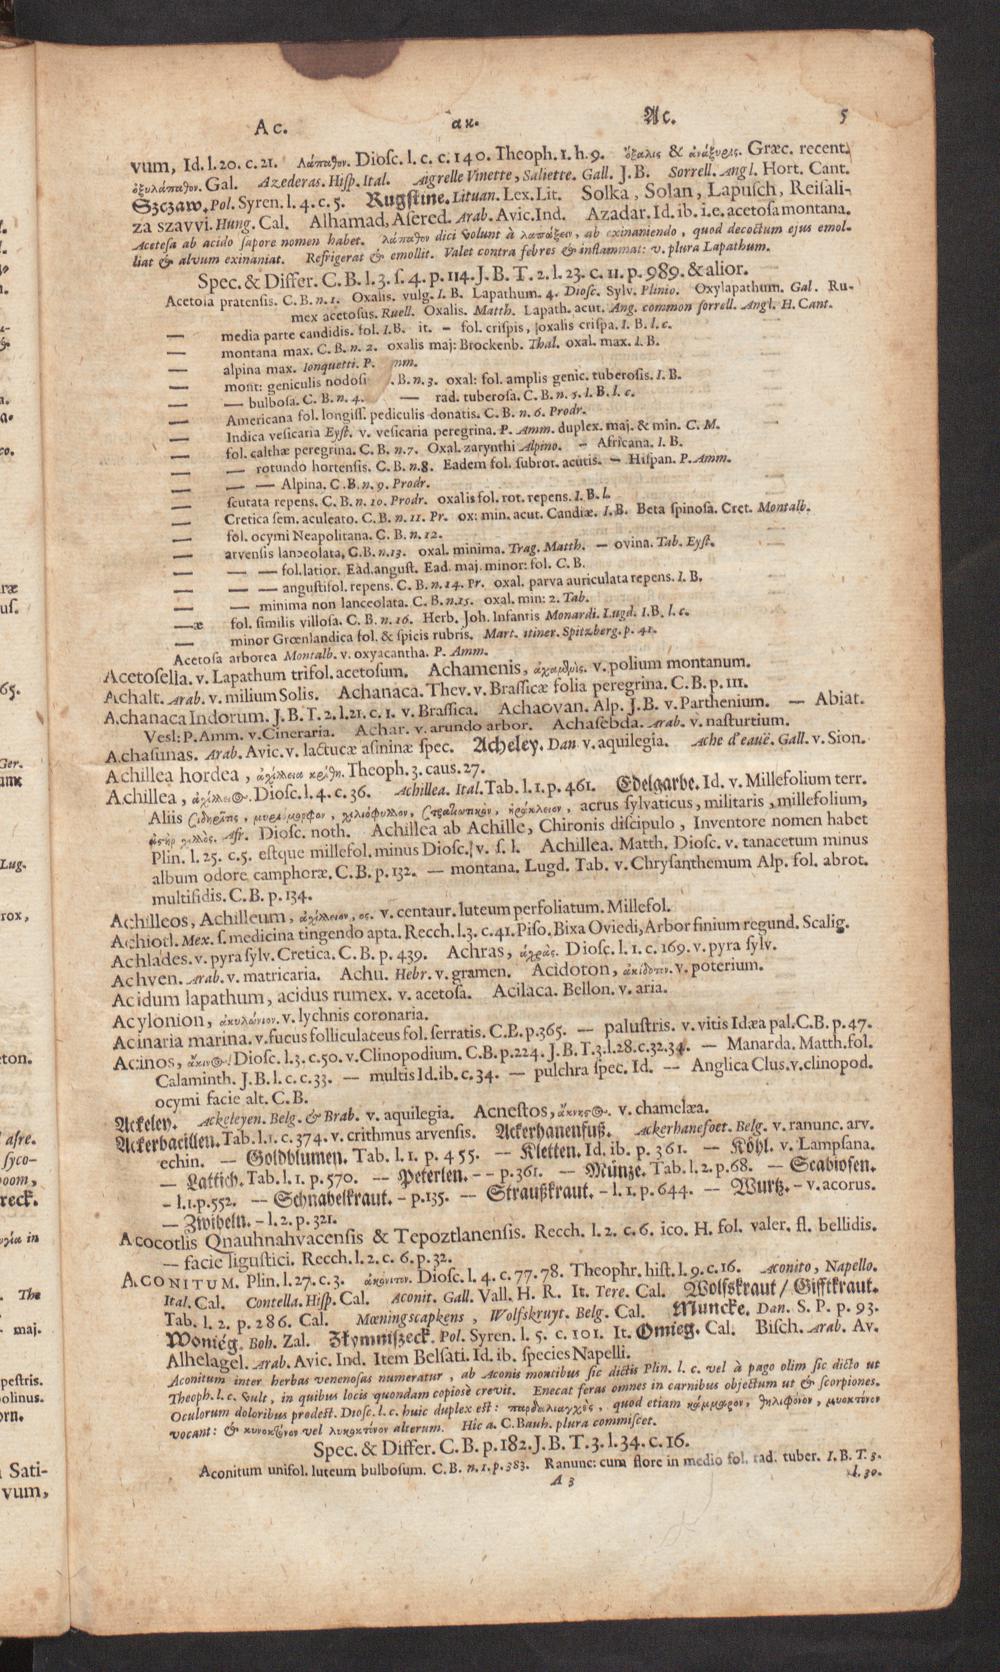 Ac. ακ. Ac. 5
vum, Id. l. 20. c. 21. Λάπαθον. Diosc. l. c. c. 140. Theoph. 1. h. 9. ὄξαλις & ἀνάξυρις. Græc. recent.
ὀξυλάπαθον. Gal. Azederas. Hisp. Ital. Aigrelle Vinette, Saliette. Gall. J. B. Sorrell. Angl. Hort. Cant.
Szczaw. Pol. Syren. l. 4. c. 5. Rugstine. Lituan. Lex. Lit. Solka, Solan, Lapusch, Reisali-
za szavvi. Hung. Cal. Alhamad, Asered. Arab. Avic. Ind. Azadar. Id. ib. i. e. acetosa montana.
Acetosa ab acido sapore nomen habet. λάπαθον dici volunt à λαπάξειν, ab exinaniendo, quod decoctum ejus emol-
liat & alvum exinaniat. Refrigerat & emollit. Valet contra febres & inflammat: v. plura Lapathum.
Spec. & Differ. C. B. l. 3. s. 4. p. 114. J. B. T. 2. l. 23. c. 11. p. 989. & alior.
Acetosa pratensis. C. B. n. 1. Oxalis. vulg. I. B. Lapathum. 4. Diosc. Sylv. Plinio. Oxylapathum. Gal. Ru-
mex acetosus. Ruell. Oxalis. Matth. Lapath. acut. Ang. common sorrell. Angl. H. Cant.
— media parte candidis. fol. I. B. it. – fol. crispis, oxalis crispa. I. B. l. c.
— montana max. C. B. n. 2. oxalis maj: Brockenb. Thal. oxal. max. I. B.
— alpina max. Ionquetti. P. mm.
— mont: geniculis nodosi . B. n. 3. oxal: fol. amplis genic. tuberosis. I. B.
— — bulbosa. C. B. n. 4. — rad. tuberosa. C. B. n. 5. I. B. l. c.
— Americana fol. longiss. pediculis donatis. C. B. n. 6. Prodr.
— Indica vesicaria Eyst. v. vesicaria peregrina. P. Amm. duplex. maj. & min. C. M.
— fol. calthæ peregrina. C. B. n. 7. Oxal. zarynthi Alpino. – Africana. I. B.
— — rotundo hortensis. C. B. n. 8. Eadem fol. subrot. acutis. – Hispan. P. Amm.
— — — Alpina. C. B. n. 9. Prodr.
— scutata repens. C. B. n. 10. Prodr. oxalis fol. rot. repens. I. B. l.
— Cretica sem. aculeato. C. B. n. 11. Pr. ox: min. acut. Candiæ. I. B. Beta spinosa. Cret. Montalb.
— fol. ocymi Neapolitana. C. B. n. 12.
— arvensis lanceolata, C. B. n. 13. oxal. minima. Trag. Matth. – ovina. Tab. Eyst.
— — — fol. latior. Ead. angust. Ead. maj. minor: fol. C. B.
— — — angustifol. repens. C. B. n. 14. Pr. oxal. parva auriculata repens. I. B.
— — minima non lanceolata. C. B. n. 15. oxal. min: 2. Tab.
—æ fol. similis villosa. C. B. n. 16. Herb. Joh. Infantis Monardi. Lugd. I. B. l. c.
— minor Grœnlandica fol. & spicis rubris. Mart. itiner. Spitzberg. p. 41.
Acetosa arborea Montalb. v. oxyacantha. P. Amm.
Acetosella. v. Lapathum trifol. acetosum. Achamenis, ἀχαιμενὶς. v. polium montanum.
Achalt. Arab. v. milium Solis. Achanaca. Thev. v. Brassicæ folia peregrina. C. B. p. 111.
Achanaca Indorum. J. B. T. 2. l. 21. c. 1. v. Brassica. Achaovan. Alp. J. B. v. Parthenium. — Abiat.
Vesl: P. Amm. v. Cineraria. Achar. v. arundo arbor. Achasebda. Arab. v. nasturtium.
Achasunas. Arab. Avic. v. lactucæ asininæ spec. Acheley. Dan. v. aquilegia. Ache d'eauë. Gall. v. Sion.
Achillea hordea, ἀχίλλεια κρίθη. Theoph. 3. caus. 27.
Achillea, ἀχίλλειος. Diosc. l. 4. c. 36. Achillea. Ital. Tab. l. 1. p. 461. Edelgarbe. Id. v. Millefolium terr.
Aliis σιδηρῖτις, μυριόμορφον, χιλιόφυλλον, στρατιωτικὸν, ἡράκλειον, acrus sylvaticus, militaris, millefolium,
Afr. Diosc. noth. Achillea ab Achille, Chironis discipulo, Inventore nomen habet
Plin. l. 25. c. 5. estque millefol. minus Diosc. v. s. l. Achillea. Matth. Diosc. v. tanacetum minus
album odore camphoræ. C. B. p. 132. — montana. Lugd. Tab. v. Chrysanthemum Alp. fol. abrot.
multifidis. C. B. p. 134.
Achilleos, Achilleum, ἀχίλλειον, ος. v. centaur. luteum perfoliatum. Millefol.
Achiotl. Mex. s. medicina tingendo apta. Recch. l. 3. c. 41. Piso. Bixa Oviedi, Arbor finium regund. Scalig.
Achlades. v. pyra sylv. Cretica. C. B. p. 439. Achras, ἀχρὰς. Diosc. l. 1. c. 169. v. pyra sylv.
Achven. Arab. v. matricaria. Achu. Hebr. v. gramen. Acidoton, ἀκίδωτον. v. poterium.
Acidum lapathum, acidus rumex. v. acetosa. Acilaca. Bellon. v. aria.
Acylonion, ἀκυλώνιον. v. lychnis coronaria.
Acinaria marina. v. fucus folliculaceus fol. serratis. C. B. p. 365. — palustris. v. vitis Idæa pal. C. B. p. 47.
Acinos, ἄκινος! Diosc. l. 3. c. 50. v. Clinopodium. C. B. p. 224. J. B. T. 3. l. 28. c. 32. 34. — Manarda. Matth. fol.
Calaminth. J. B. l. c. c. 33. — multis Id. ib. c. 34. — pulchra spec. Id. — Anglica Clus. v. clinopod.
ocymi facie alt. C. B.
Ackeley. Ackeleyen. Belg. & Brab. v. aquilegia. Acnestos, ἄκνηστος. v. chamelæa.
Ackerbacillen. Tab. l. 1. c. 374. v. crithmus arvensis. Ackerhanenfuß. Ackerhanefoet. Belg. v. ranunc. arv.
echin. — Goldblumen. Tab. l. 1. p. 455. — Kletten. Id. ib. p. 361. — Köhl. v. Lampsana.
— Lattich. Tab. l. 1. p. 570. — Peterlen. – – p. 361. — Müntze. Tab. l. 2. p. 68. — Scabiosen.
– l. 1. p. 552. — Schnabelkraut. – p. 135. — Straußkraut. – l. 1. p. 644. — Wurtz. – v. acorus.
— Zwibeln. – l. 2. p. 321.
Acocotlis Qnauhnahvacensis & Tepoztlanensis. Recch. l. 2. c. 6. ico. H. fol. valer. fl. bellidis.
— facie ligustici. Recch. l. 2. c. 6. p. 32.
ACONITUM. Plin. l. 27. c. 3. ἀκόνιτον. Diosc. l. 4. c. 77. 78. Theophr. hist. l. 9. c. 16. Aconito, Napello.
Ital. Cal. Contella. Hisp. Cal. Aconit. Gall. Vall. H. R. It. Tere. Cal. Wolfskraut / Gifftkraut.
Tab. l. 2. p. 286. Cal. Mœningscapkens, Wolfskruyt. Belg. Cal. Muncke. Dan. S. P. p. 93.
Wonieg. Boh. Zal. Zkymniszeck. Pol. Syren. l. 5. c. 101. It. Omieg. Cal. Bisch. Arab. Av.
Alhelagel. Arab. Avic. Ind. Item Belsati. Id. ib. species Napelli.
Aconitum inter herbas venenosas numeratur, ab Aconis montibus sic dictis Plin. l. c. vel à pago olim sic dicto ut
Theoph. l. c. vult, in quibus locis quondam copiosè crevit. Enecat feras omnes in carnibus objectum ut & scorpiones.
Oculorum doloribus prodest. Diosc. l. c. huic duplex est: παρδαλιαγχὲς, quod etiam κάμμαρον, θηλιφόνον, μυοκτόνον
vocant: & κυνοκτόνον vel λυκοκτόνον alterum. Hic a. C. Bauh. plura commiscet.
Spec. & Differ. C. B. p. 182. J. B. T. 3. l. 34. c. 16.
Aconitum unifol. luteum bulbosum. C. B. n. 1. p. 383. Ranunc: cum flore in medio fol. rad. tuber. I. B. T. 3.
A 3 l. 30.